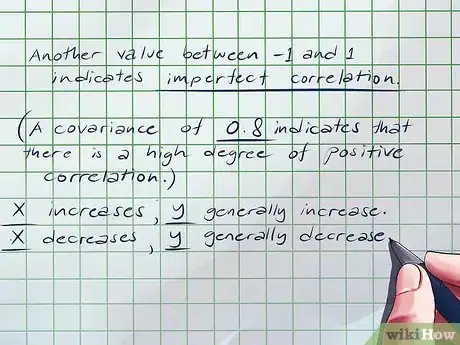 Another value between -1 and 1
indicates imperfect correlation.
(A covariance of 0.8 indicates that
there is a high degree of positive
correlation.)
X increases, y generally increase.
X decreases, y generally decrease.
wikiHow